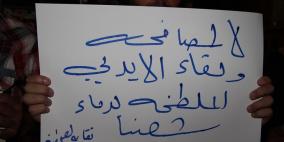 لا لمصافحة
ولقاء الايدي
الملطخة بدماء
شعبنا